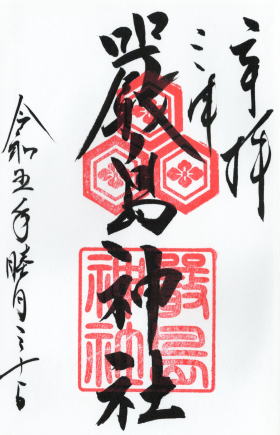 奉拝
三津
嚴島神社
嚴島
神社
令和五年睦月三十日